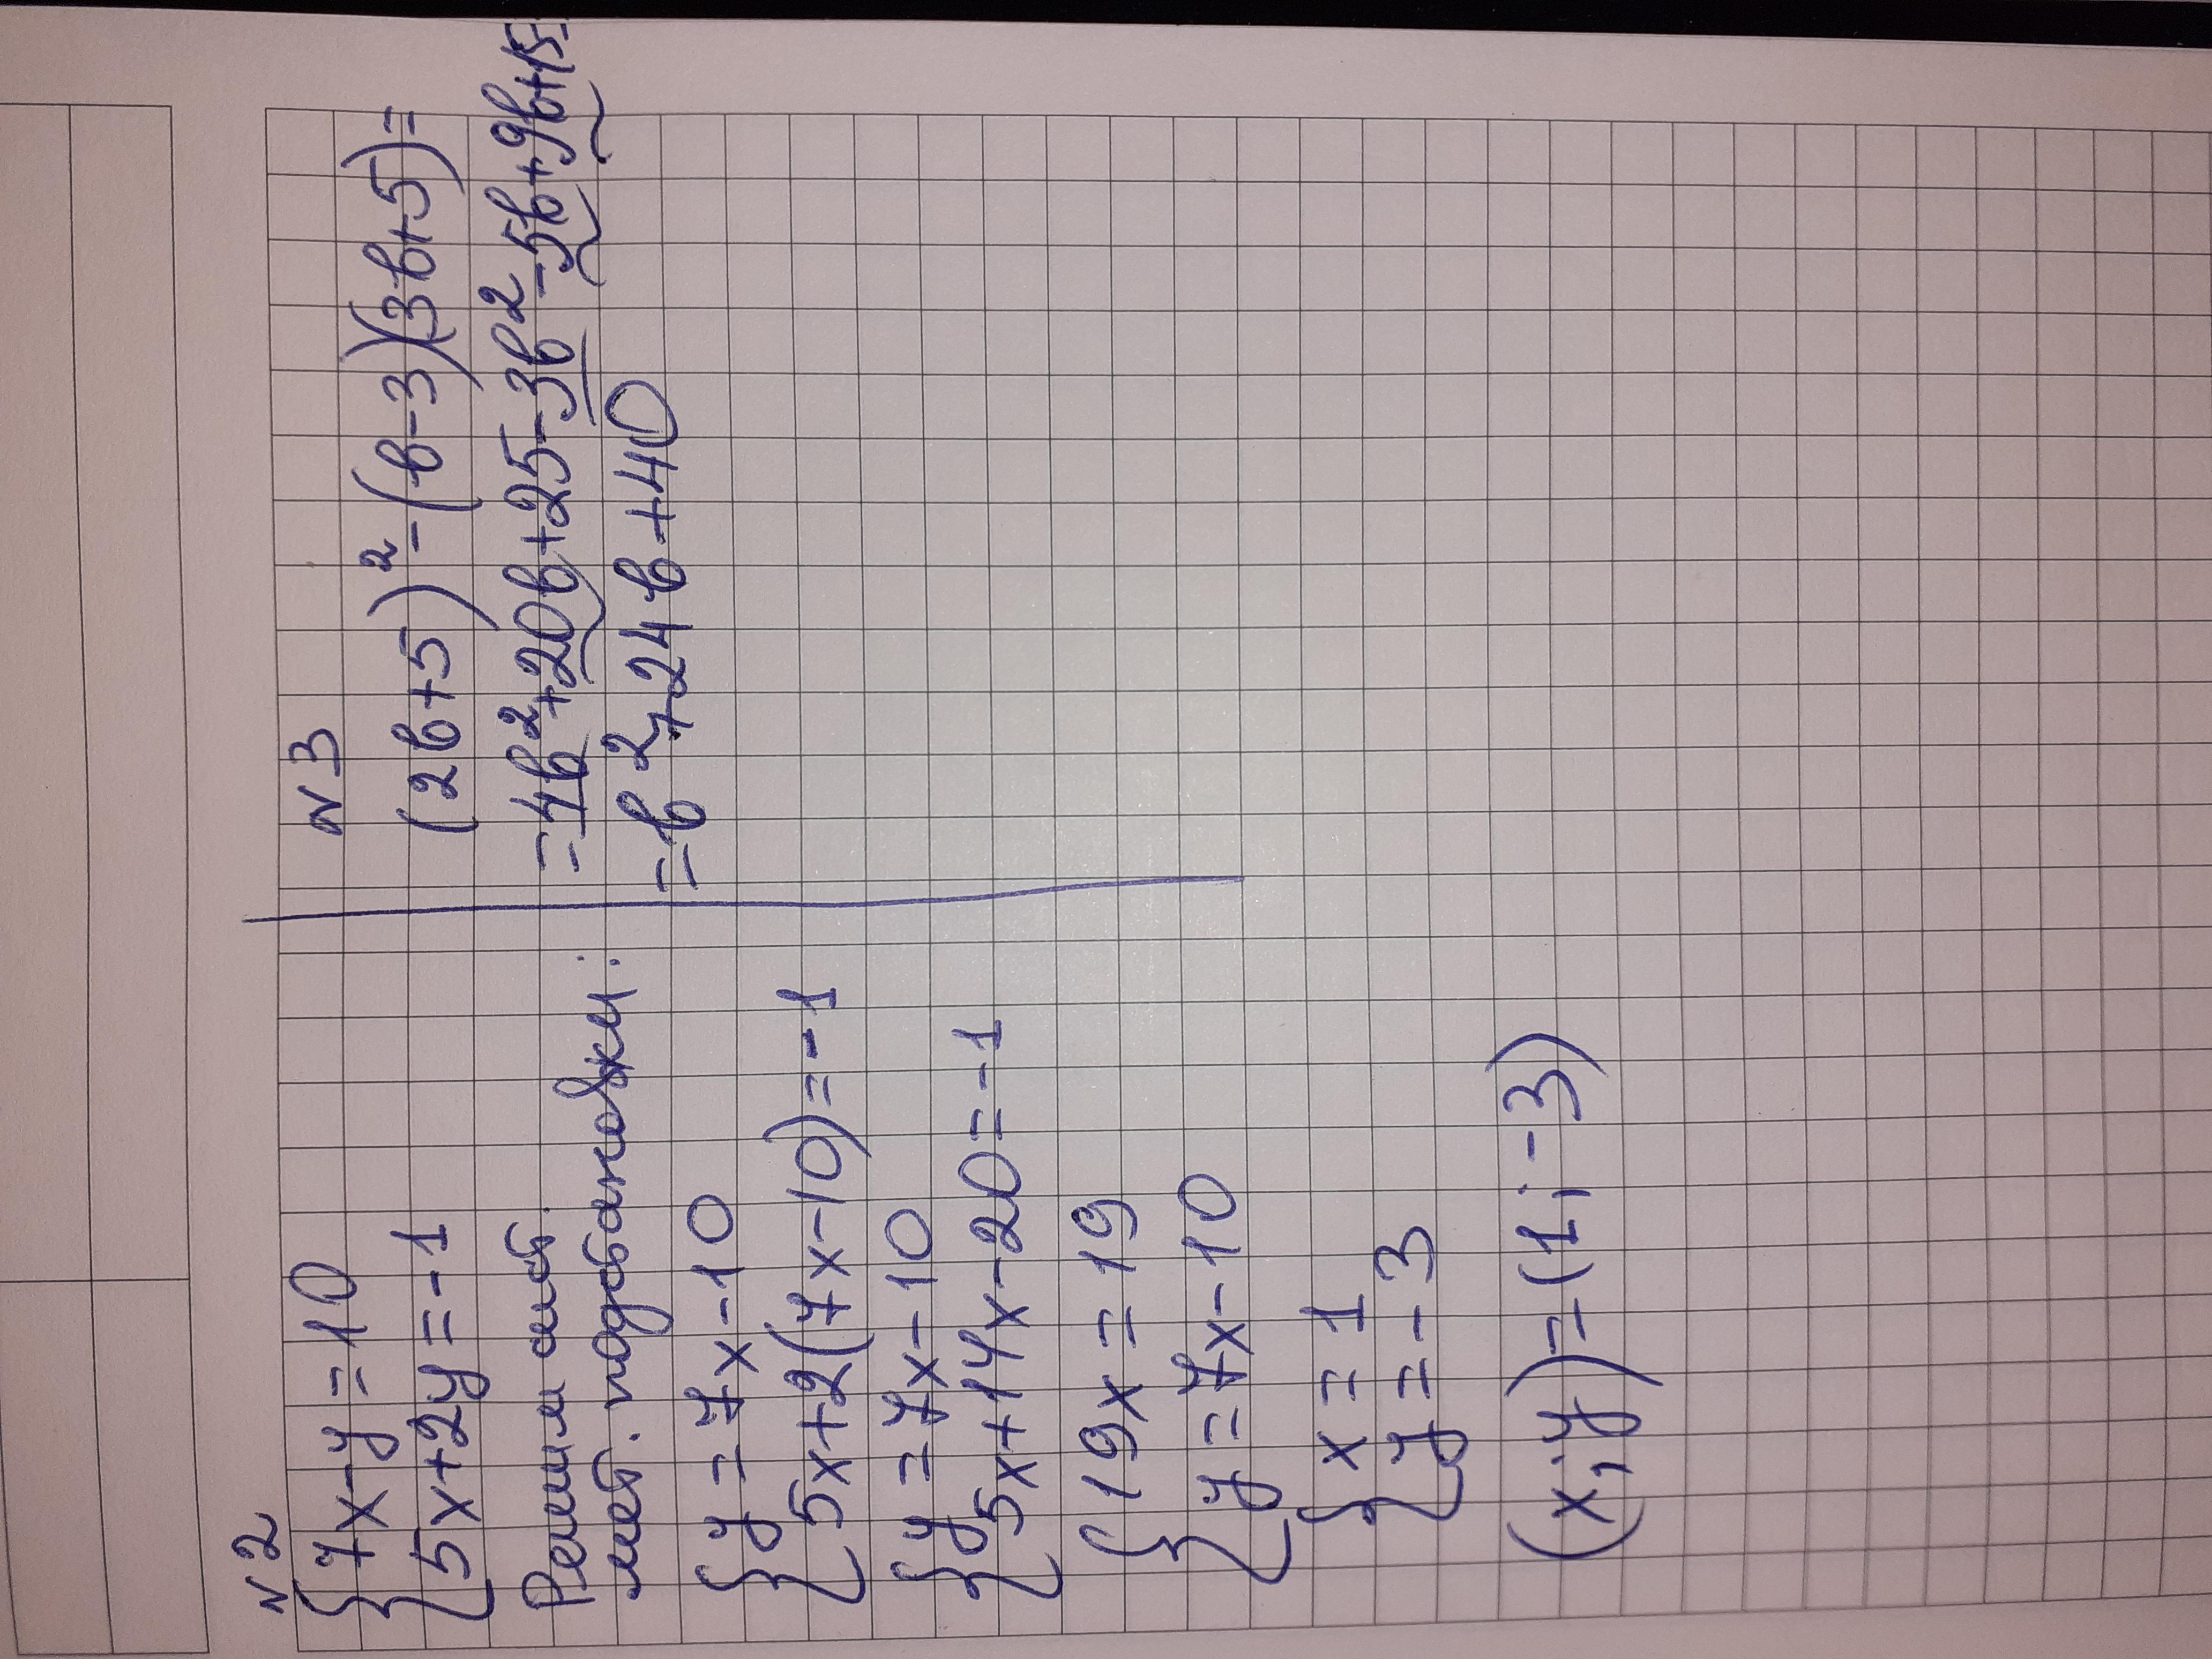 N2
{7x-y=10
5x+2y=-1
Решим сист.
мет. подстановки:
{y=7x-10
5x+2(7x-10)=-1
{y=7x-10
5x+14x-20=-1
{19x=19
y=7x-10
{x=1
y=-3
(x;y)=(1;-3)
N3
(2b+5)²-(b-3)(3b+5)=
=4b²+20b+25-3b²-5b+9b+15=
=b²+24b+40